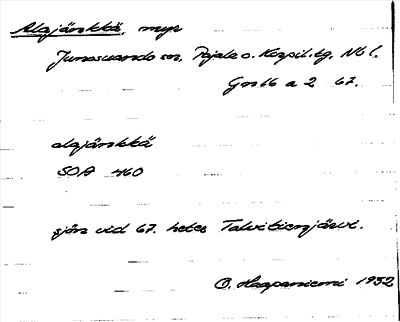 Alajänkkä, myr
Junosuando sn. Pajala o. Korpil. tg. Nb l.
Gn 16 a 2 67.
alajänkkä
SOA 460
sjön vid 67. heter Talvitienjärvi.
O. Haapaniemi 1932